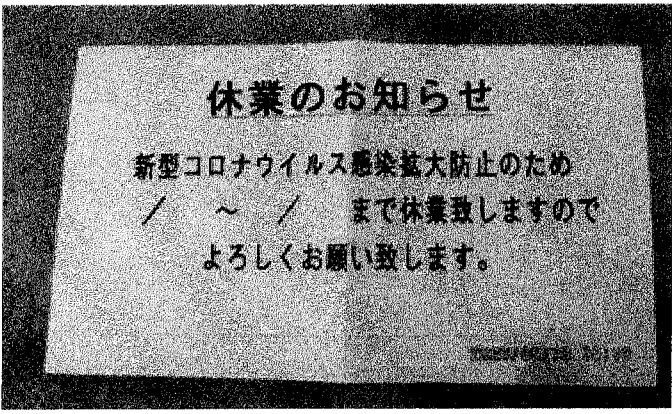 休業のお知らせ
新型コロナウイルス感染拡大防止のため
／　～　／　まで休業致しますので
よろしくお願い致します。